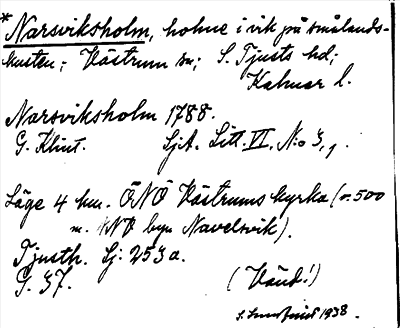 * Narsviksholm, holme i vik på smålands-
kusten; Västrum sn; S. Tjusts hd;
Kalmar l.
Narsviksholm 1788.
G. Klint. SjA. Litt. VI, No 3,1.
Läge 4 km. ÖNÖ Västrums kyrka (c:a 500
m. NNO byn Navelsvik).
Tjusth. Sj: 253 a.
G. 37. (Vänd!)
1938.